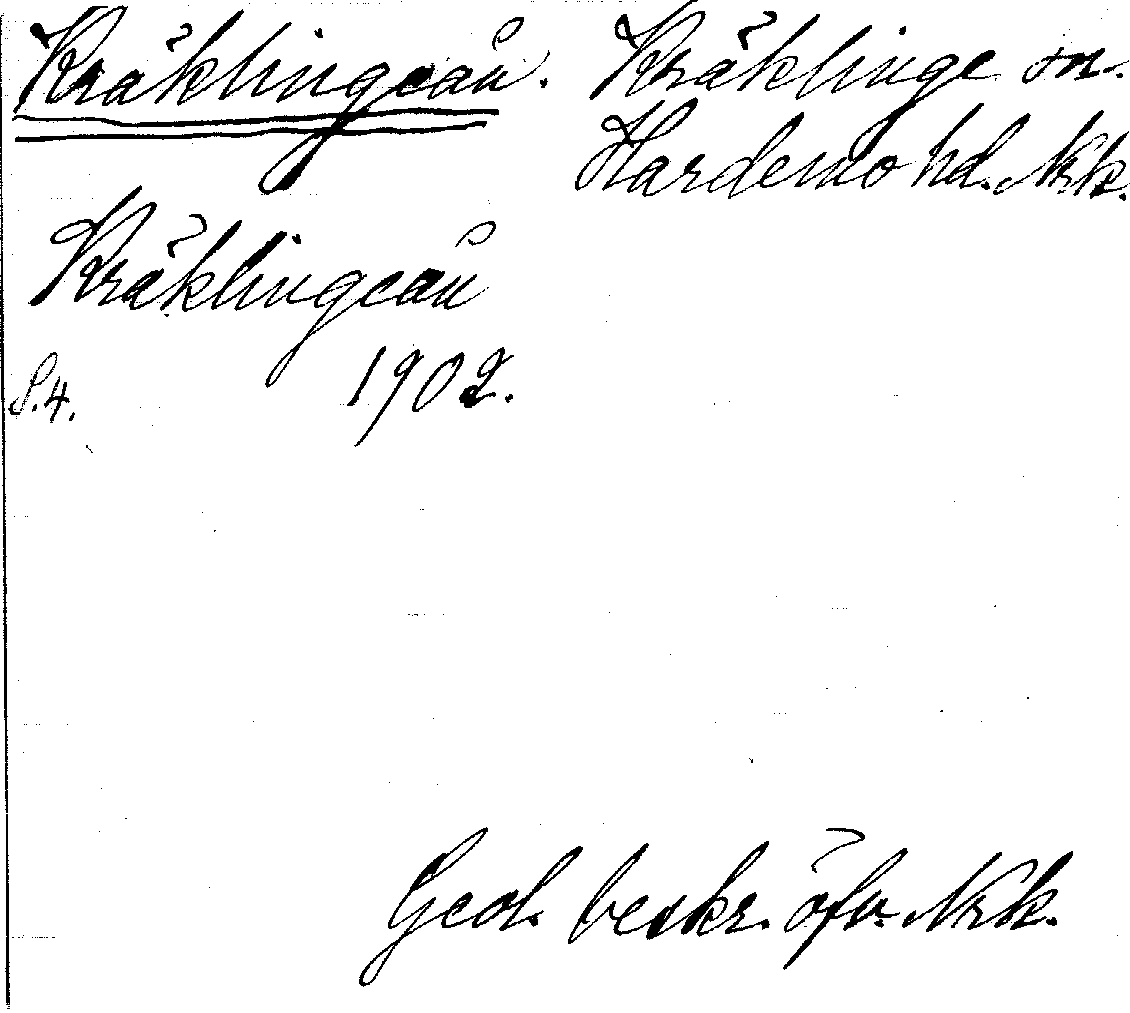 Kräklingeån. Kräklinge sn.
Hardemo hd. Nrk.
Kräklingeån
S. 4. 1902.
Geol. beskr. öfv. Nrk.